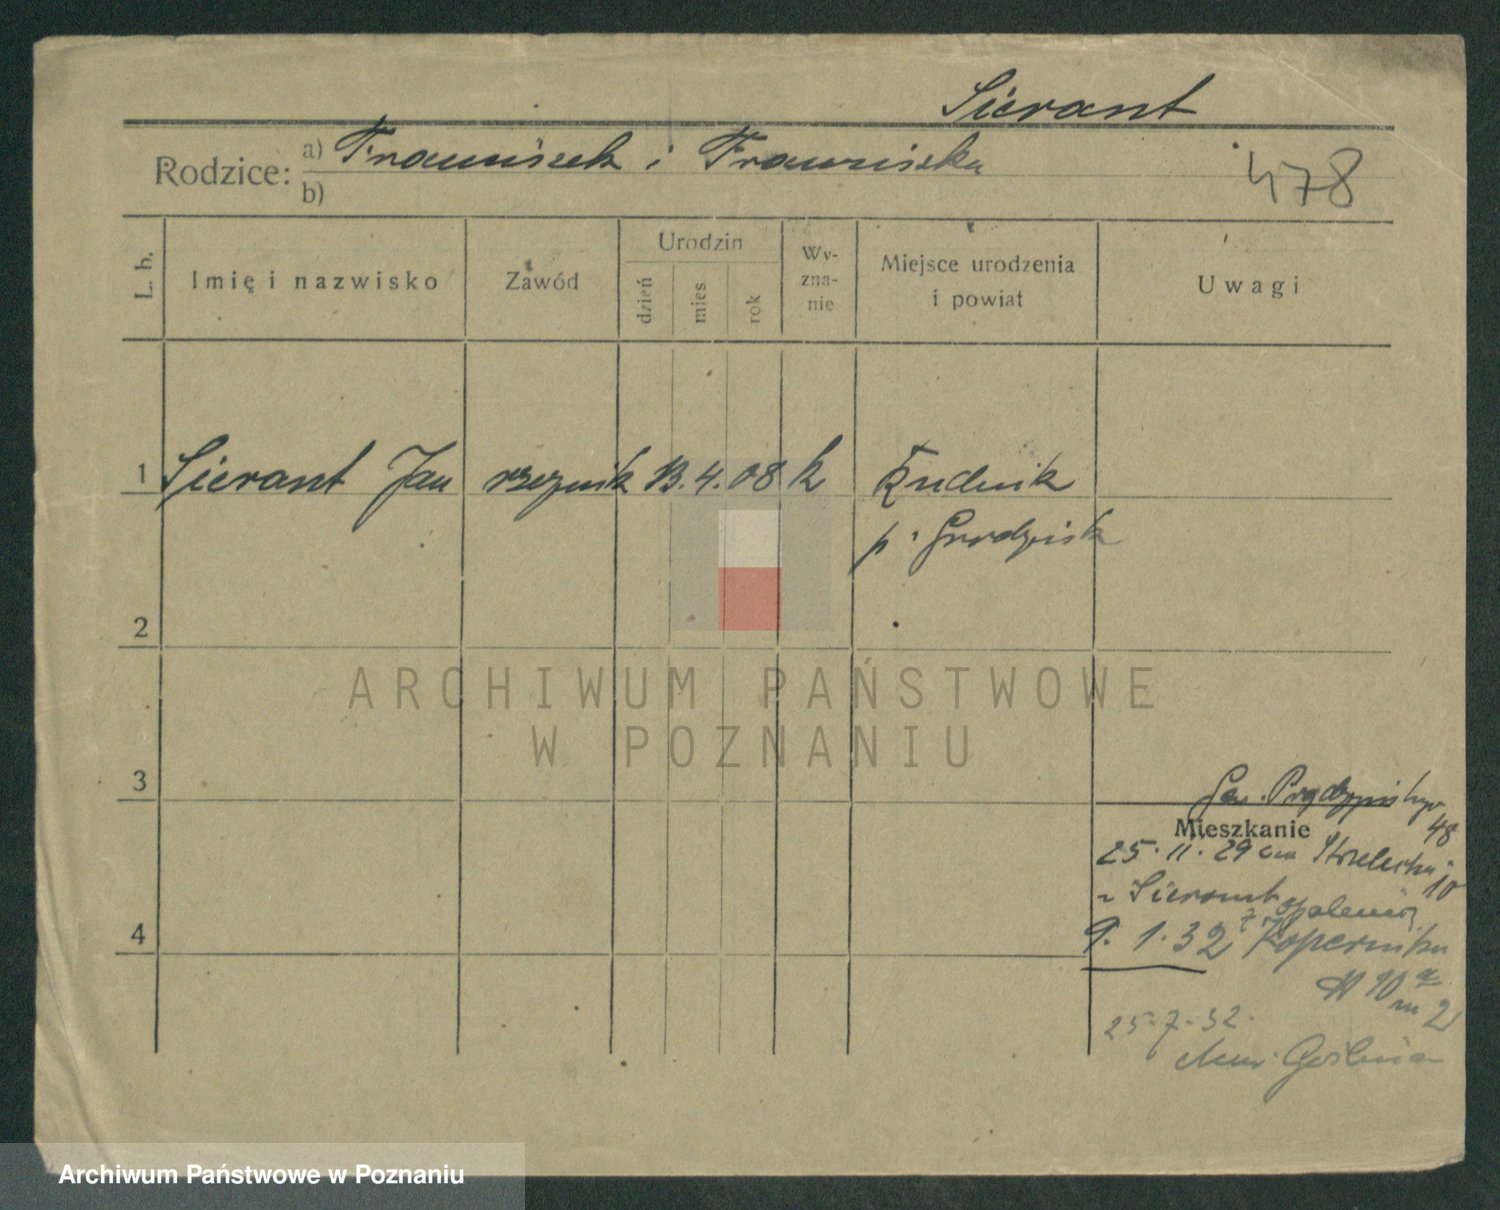 Sierant
Rodzice: a) Franciszek i Franciszka
b)
478
L. b.
Imię i nazwisko
Zawód
Urodzin
dzień
mies
rok
Wy-
zna-
nie
Miejsce urodzenia
i powiat
Uwagi
1 Sierant Jan rzeźnik 13.4.08 k Rudnik
p. Grodzisk
2
ARCHIWUM PAŃSTWOWE
W POZNANIU
3
Prądzyńskiego
48
Mieszkanie
25.11.29 Strzelecka
10
Sierant
z Opalenicy
4
9.1.32 Kopernika
10 a
m 2
25.7.32.
Mur. Goślina
Archiwum Państwowe w Poznaniu